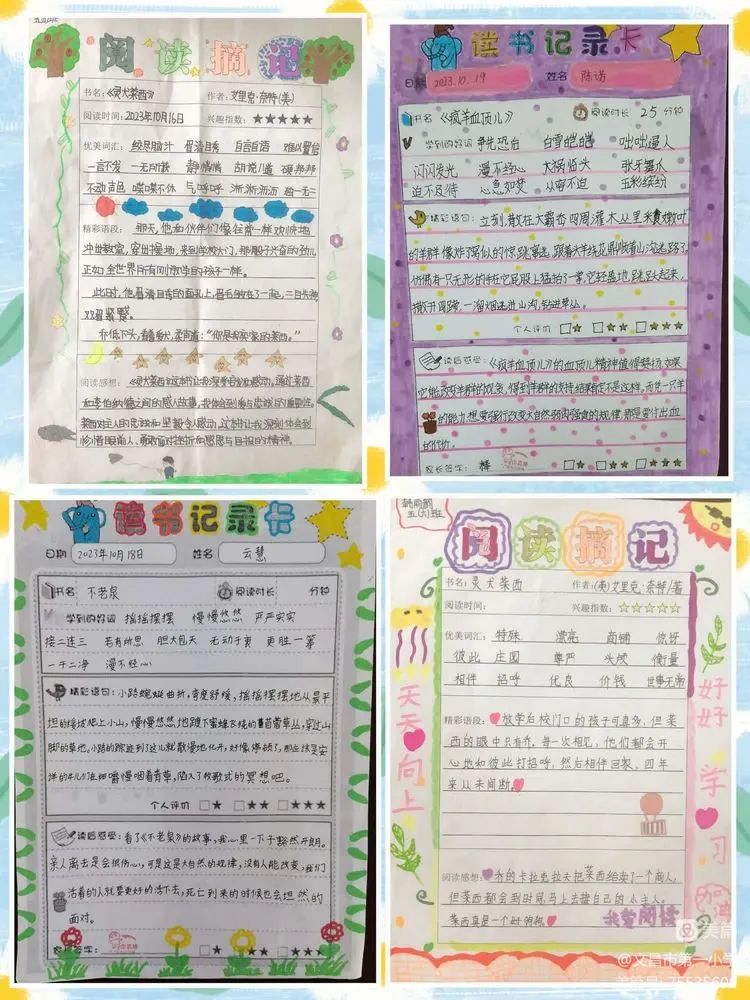 阅读摘记
书名:《灵犬莱西》 作者:艾里克·奈特(美)
阅读时间:2023年10月16日 兴趣指数:★★★★★
优美词汇: 绞尽脑汁 眉清目秀 自言自语 难以置信
一言不发 一无所获 静悄悄 胡说八道 硬邦邦
不动声色 喋喋不休 气呼呼 淅淅沥沥 独一无二
精彩语段: 那天,他和伙伴们像往常一样欢快地
冲出教室,穿过操场,来到学校大门,那股子兴奋的劲儿
正如全世界所有刚放学的孩子一样。
此时,他眉清目秀的面孔上,眉毛皱在了一起,
乔低下头,看着爱犬,柔声道:“你是我家的莱西。”
阅读感想:《灵犬莱西》这本书让我深受启发和感动,通过莱西
和主人之间的感人故事,我体会到爱与忠诚的重要性。
莱西对主人的忠诚和坚毅令人感动,这本书让我深刻体会到
珍惜眼前人、勇敢面对挫折和感恩与自强的精神。
读书记录卡
日期 2023.10.19 姓名 陈诺
书名 《疯羊血顶儿》 阅读时长 25 分钟
学到的好词 争先恐后 白雪皑皑 咄咄逼人
闪闪发光 漫不经心 大祸临头 张牙舞爪
迫不及待 心急如焚 从容不迫 五彩缤纷
精彩语句: 立刻,散放在大霸岙四周灌木丛里采食嫩叶
的羊群像炸了窝似的惊跳窜逃,跟着大羊绕花鼎顺着山沟逃跑了。
仿佛有一只无形的手在它屁股上猛拍了一掌,它轻盈地跳跃起来,
撒开四蹄,一溜烟逃进山沟,钻进草丛。
个人评价 □★ □★★ □★★★
读后感受:《疯羊血顶儿》的血顶儿精神值得赞扬,如果
它能改变羊群的观念,得到羊群的支持,结果肯定不是这样。而凭一只羊
的能力想要强行改变大自然弱肉强食的规律,那是要付出血
的代价。
家长签字: 棒 □★ □★★ □★★★
读书记录卡
日期 2023年10月18日 姓名 云慧
书名 不老泉 阅读时长 分钟
学到的好词 摇摇摆摆 慢慢悠悠 严严实实
接二连三 若有所思 胆大包天 无动于衷 更胜一筹
一干二净 漫不经心
精彩语句: 小路蜿蜒曲折,弯度舒缓,摇摇摆摆地从最平
坦的缓坡爬上小山,慢慢悠悠地踱下蜜蜂飞绕的苜蓿草丛,穿过山
脚的草地。小路的踪迹到了这儿就散漫地化开,好像停顿了,那应该是安
详的牛儿们在细嚼慢咽着青草,陷入了牧歌式的冥想吧。
个人评价 □★ □★★ □★★★
读后感受: 看了《不老泉》的故事,我心里一下子豁然开朗。
亲人离去是会很伤心,可是这是大自然的规律,没有人能改变,我们
活着的人就要更好的活下去,死亡到来的时候也会坦然的
面对。
家长签字: □★ □★★ □★★★
五(六)班
阅读摘记
书名:灵犬莱西 作者:(美)艾里克·奈特/著
阅读时间: 兴趣指数:☆☆☆☆☆
优美词汇: 特殊 漂亮 商铺 惊讶
彼此 庄园 尊严 头颅 衡量
相伴 招呼 优良 价钱 世事无常
精彩语段: 放学后校门口的孩子可真多,但莱
西的眼中只有乔,每一次相见,他们都会开
心地和彼此打招呼,然后相伴回家,四年
来从未间断。
阅读感想: 乔的卡拉克拉夫把莱西给卖了一个商人,
但莱西都会到时居马上去接自己的小主人。
莱西真是一个好狗狗。
我爱阅读
天天向上
好好学习
加油
美篇
@文昌市第一小学